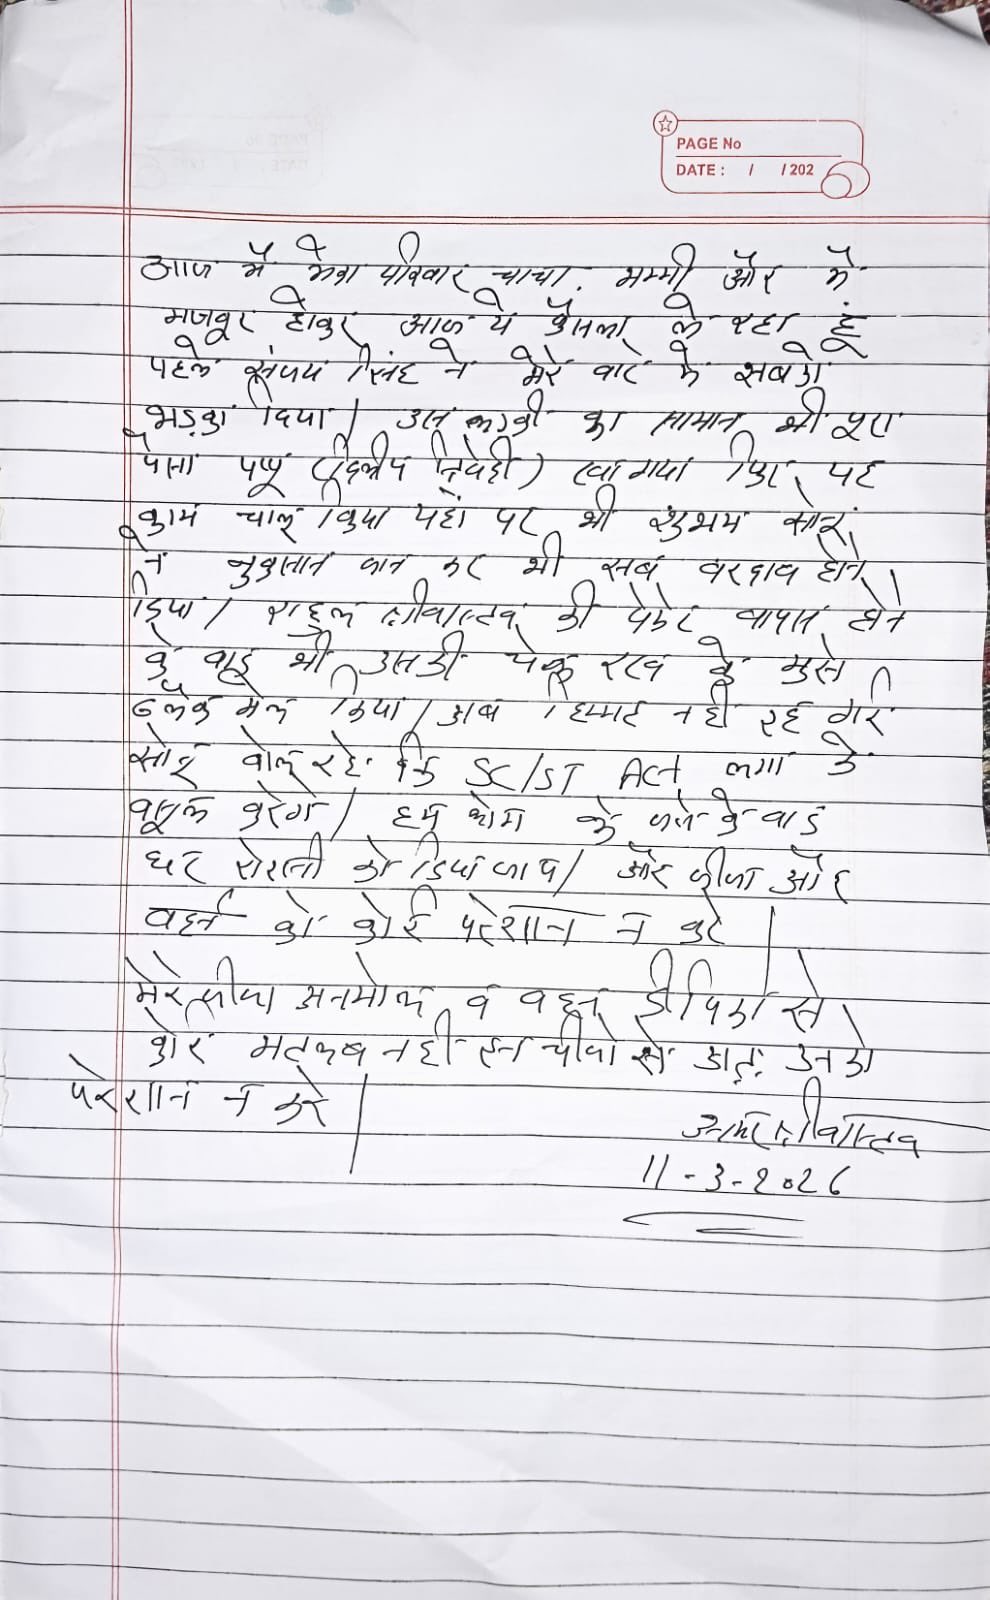 PAGE No
DATE : / / 202
आज मैं मेरा परिवार चाचा. मम्मी और मैं
मजबूर होकर आज ये फैसला ले रहा हूं
पहले संजय सिंह ने मेरे बारे में सबको
भड़का दिया। उस लकड़ी का सामान भी पूरा
पैसा पप्पू (दिलीप त्रिवेदी) खा गया फिर यह
काम चालू किया यहां पर भी शुभम सोनं
ने नुकसान जान कर भी सब बरदाव होने
दिया। राहुल श्रीवास्तव की पेमेंट वापस होने
के बाद भी उसकी चेक रख के मुझे
ब्लैक मेल किया। अब हिम्मत नही रह गई
सोनू बोल रहे कि SC/ST Act लगा के
वसूल करेगे। हम लोग के जाने के बाद
घर को दिया जाय। और जीजा और
बहन को कोई परेशान न करे।
मेरे जीजा अनमोल व बहन दीपिका से
कोई मतलब नही इन चीजो से अतः उनको
परेशान न करे।
श्रीवास्तव
11-3-2026